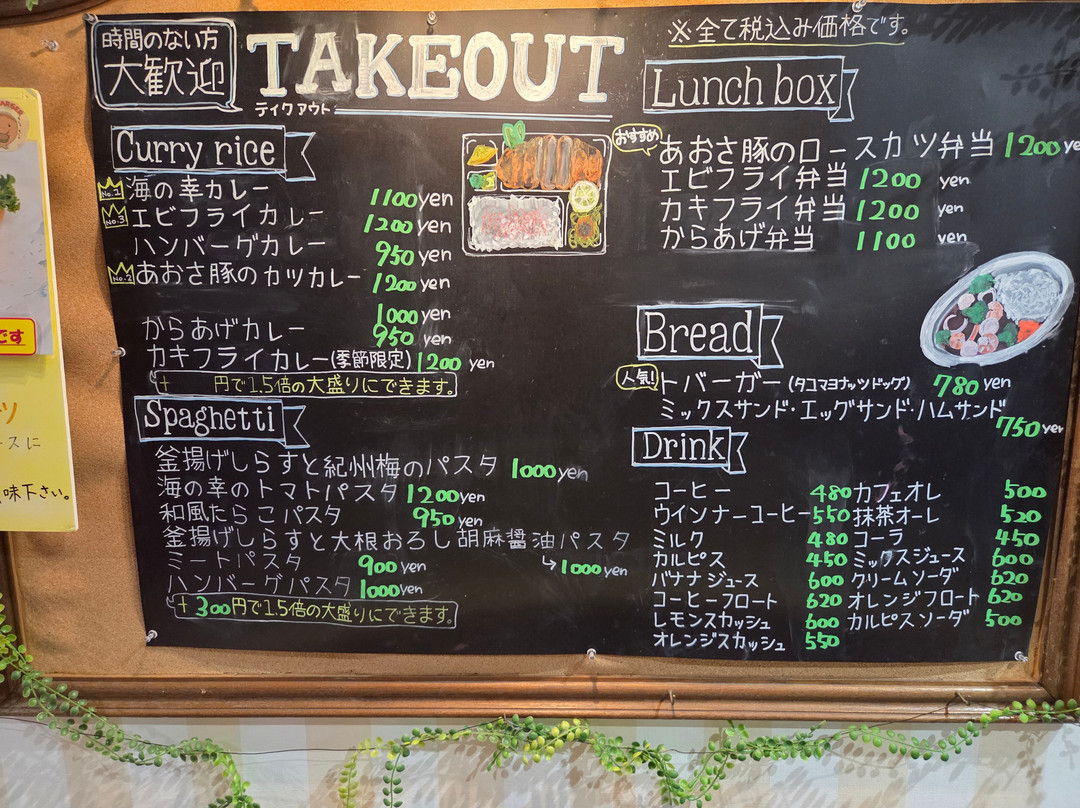 時間のない方
大歓迎
TAKEOUT
テイクアウト
※全て税込み価格です。
Curry rice
No.1 海の幸カレー 1100yen
No.3 エビフライカレー 1200yen
ハンバーグカレー 950yen
No.2 あおさ豚のカツカレー 1200yen
1000yen
からあげカレー 950yen
カキフライカレー(季節限定) 1200 yen
+ 円で1.5倍の大盛りにできます。
Spaghetti
釜揚げしらすと紀州梅のパスタ 1000yen
海の幸のトマトパスタ 1200yen
和風たらこパスタ 950yen
釜揚げしらすと大根おろし胡麻醤油パスタ
→1000yen
ミートパスタ 900yen
ハンバーグパスタ 1000yen
+300円で1.5倍の大盛りにできます。
Lunch box
おすすめ あおさ豚のロースカツ弁当 1200ye
エビフライ弁当 1200 yen
カキフライ弁当 1200 yen
からあげ弁当 1100 yen
Bread
人気! トバーガー(タコマヨナッツドッグ) 780yen
ミックスサンド・エッグサンド・ハムサンド
750yen
Drink
コーヒー 480 カフェオレ 500
ウインナーコーヒー 550 抹茶オーレ 520
ミルク 480 コーラ 450
カルピス 450 ミックスジュース 600
バナナジュース 600 クリームソーダ 620
コーヒーフロート 620 オレンジフロート 620
レモンスカッシュ 600 カルピスソーダ 500
オレンジスカッシュ 550
です
スに
味下さい。